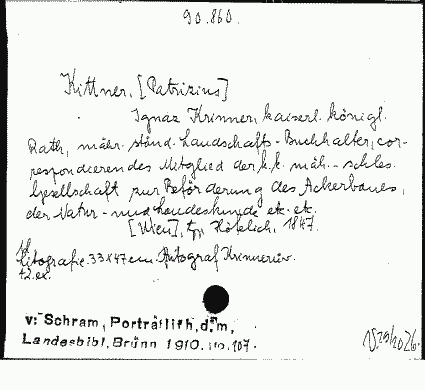 90.860.
Kittner, [Patrizius]
Ignaz Krinner, kaiserl. königl.
Rath, mähr. ständ. Landschafts-Buchhalter, cor-
respondierendes Mitglied der k. k. mäh.-schles.
Gesellschaft zur Beförderung des Ackerbaues,
der Natur- und Landeskunde etc. etc.
[Wien], typ. Höfelich, 1847.
Litografie. 33x47 cm. Autograf Krinnerův.
+2.ex.
v: Schram, Porträtlith, d. m.
Landesbibl. Brünn 1910.
107.